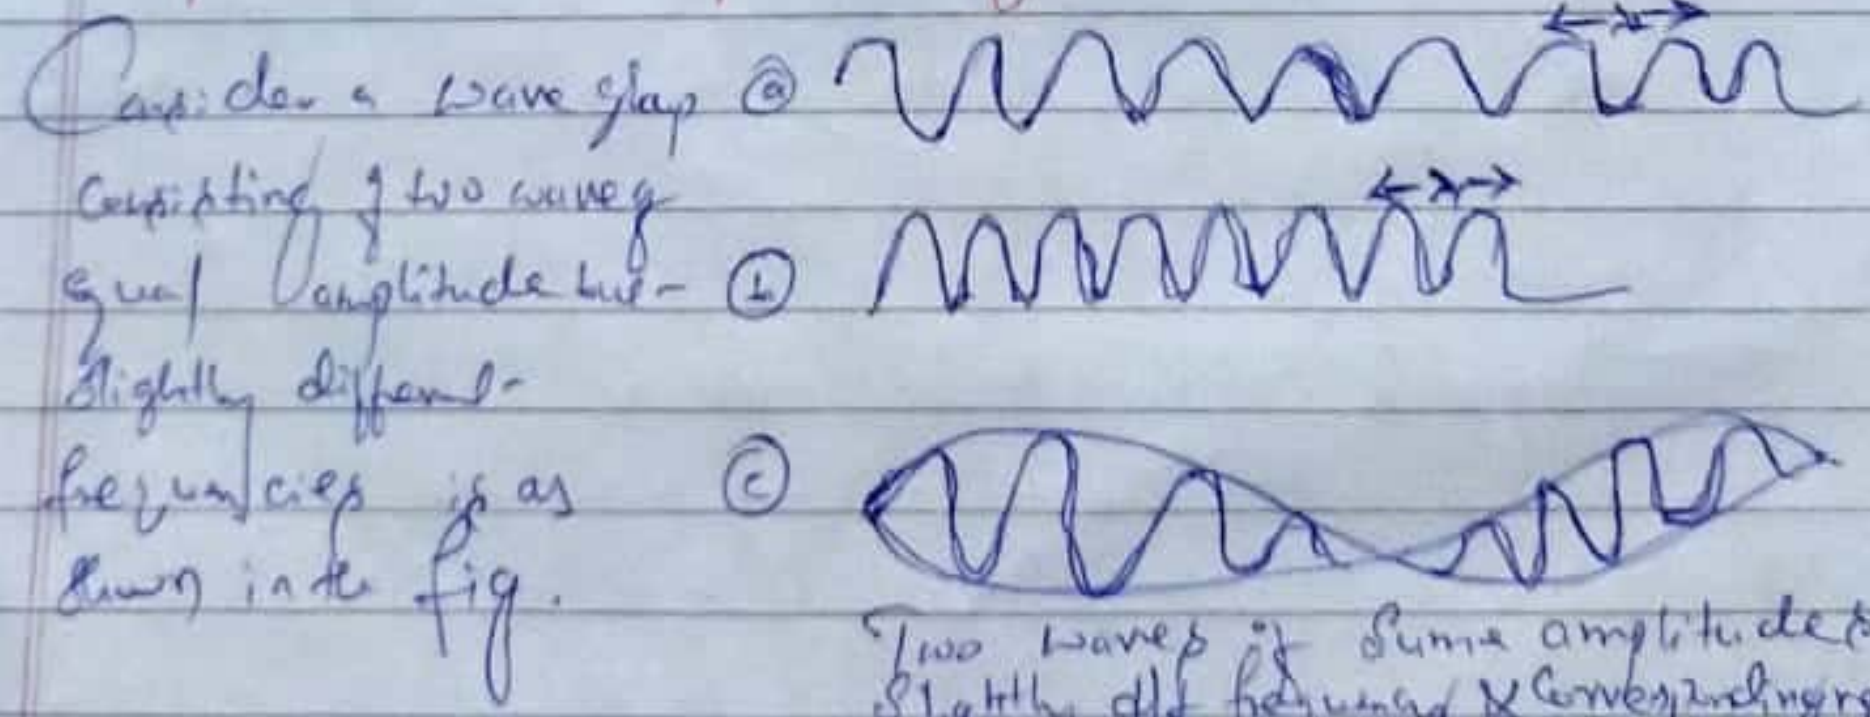 Consider a wave group (a)
λ
Consisting of two waves
λ
equal amplitude but (b)
slightly different
frequencies is as (c)
shown in the fig.
Two waves of same amplitudes
slightly diff frequency &